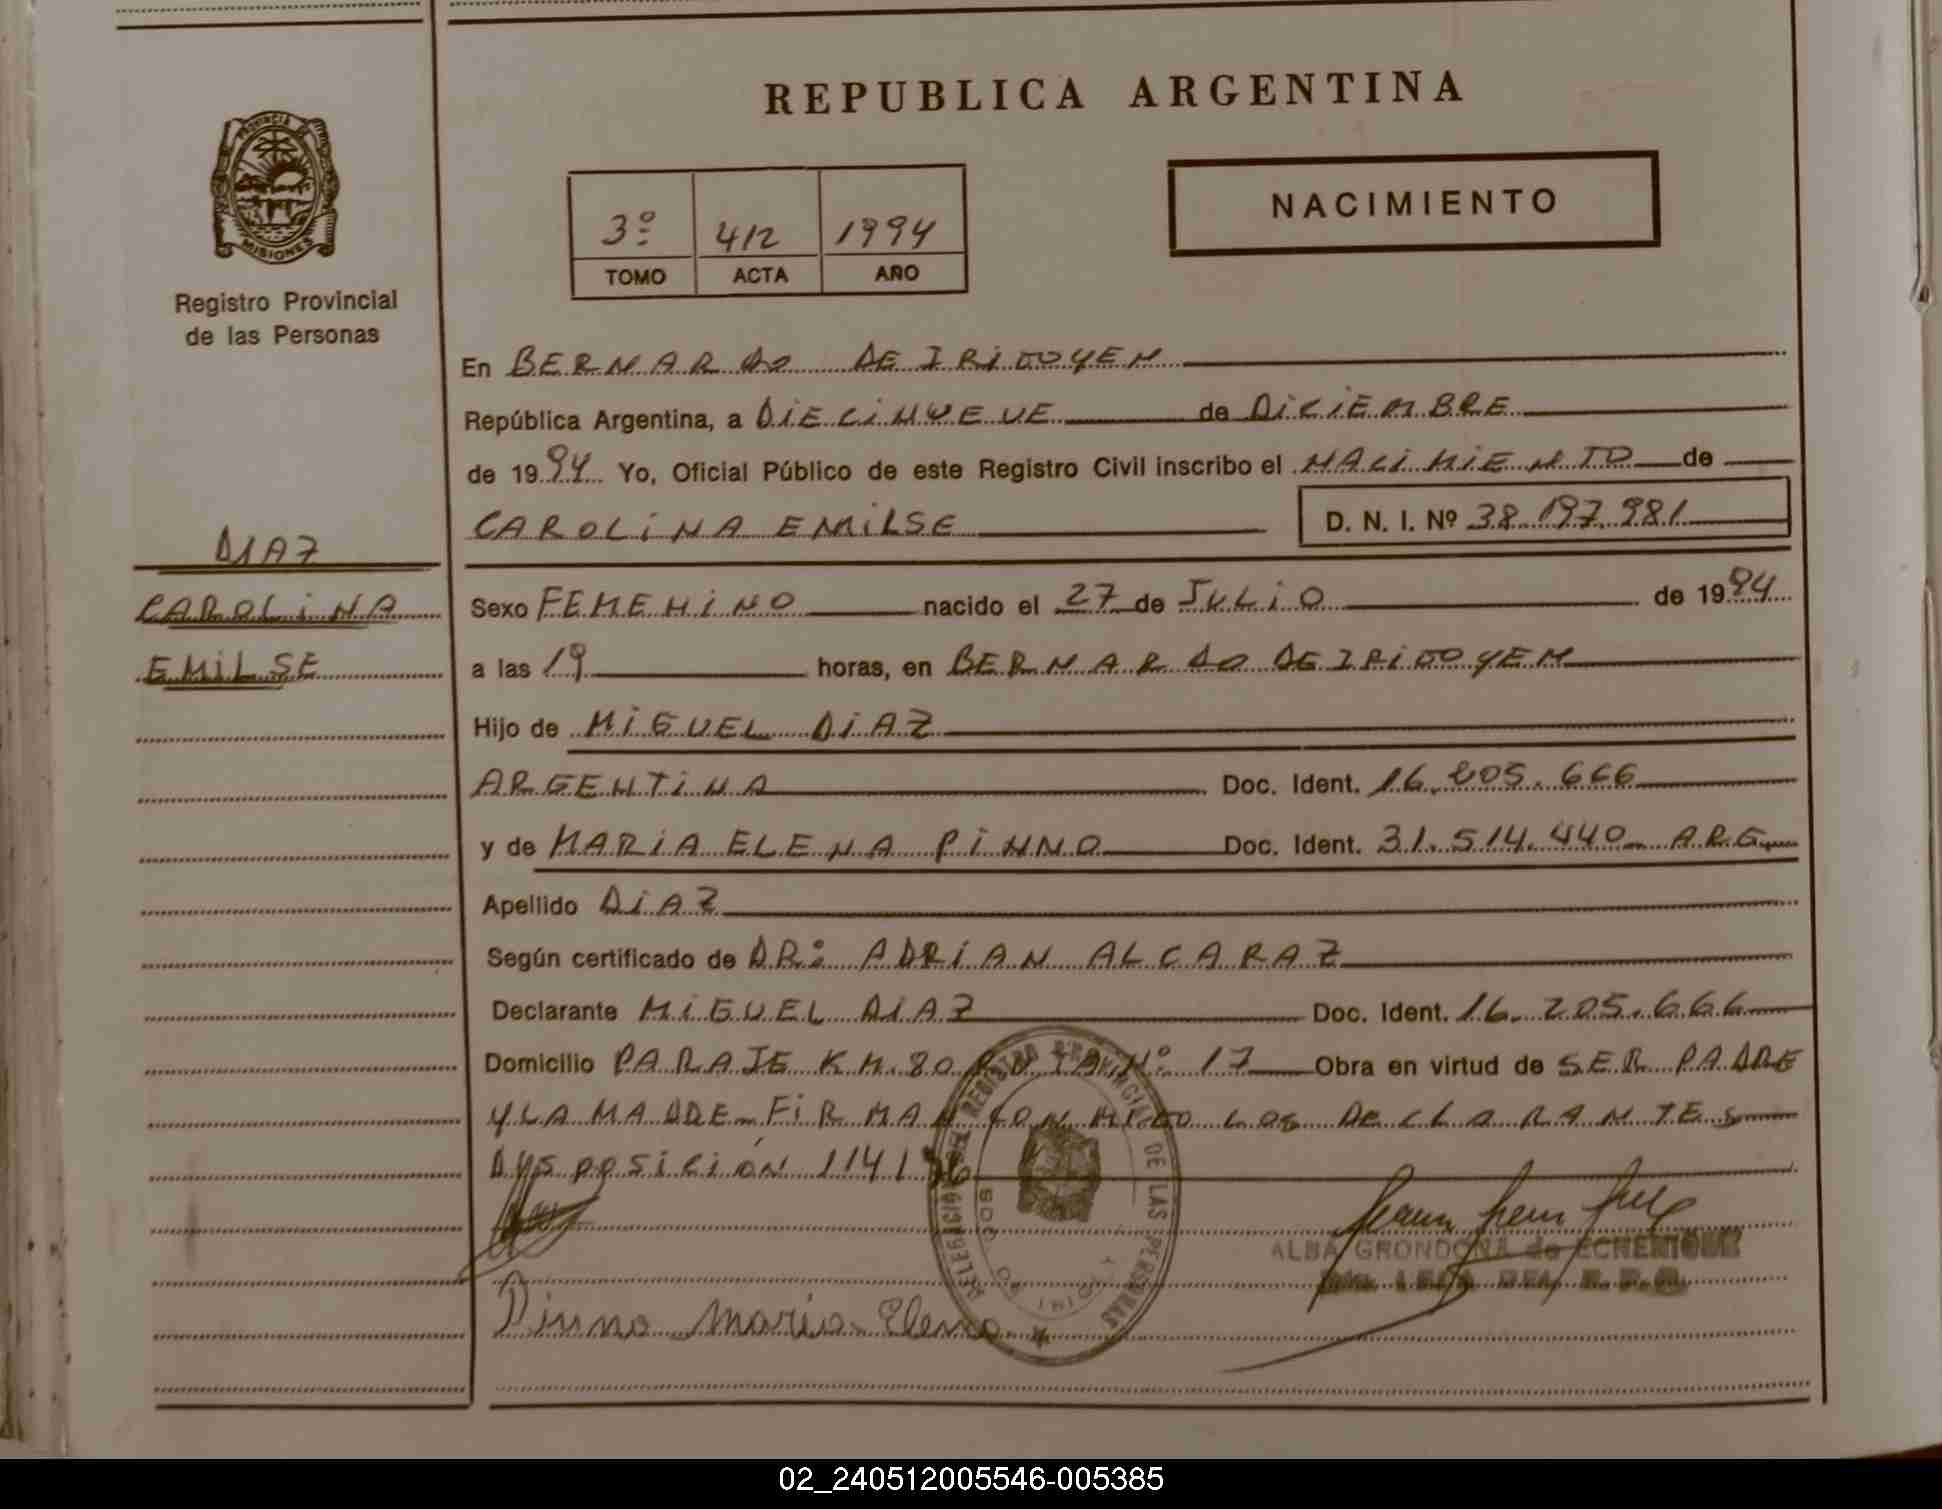 REPUBLICA ARGENTINA
PROVINCIA DE
MISIONES
Registro Provincial
de las Personas
3º 412 1994
TOMO ACTA AÑO
NACIMIENTO
En BERNARDO DE IRIGOYEN
República Argentina, a DIECINUEVE de DICIEMBRE
de 1994 Yo, Oficial Público de este Registro Civil inscribo el NACIMIENTO de
CAROLINA EMILSE D. N. I. Nº 38.197.981
DIAZ
CAROLINA
EMILSE
Sexo FEMENINO nacido el 27 de JULIO de 1994
a las 19 horas, en BERNARDO DE IRIGOYEN
Hijo de MIGUEL DIAZ
ARGENTINA Doc. Ident. 16.205.666
y de MARIA ELENA PINNO Doc. Ident. 31.514.440 ARG
Apellido DIAZ
Según certificado de DR: ADRIAN ALCARAZ
Declarante MIGUEL DIAZ Doc. Ident. 16.205.666
Domicilio PARAJE KM. 80 Nº 17 Obra en virtud de SER PADRE
Y LA MADRE FIRMAN CONMIGO LOS DECLARANTES
DISPOSICIÓN 114
REGISTRO PROVINCIAL DE LAS PERSONAS
ALBA GRONDONA de ECHENIQUE
Pinno Maria Elena
02_240512005546-005385